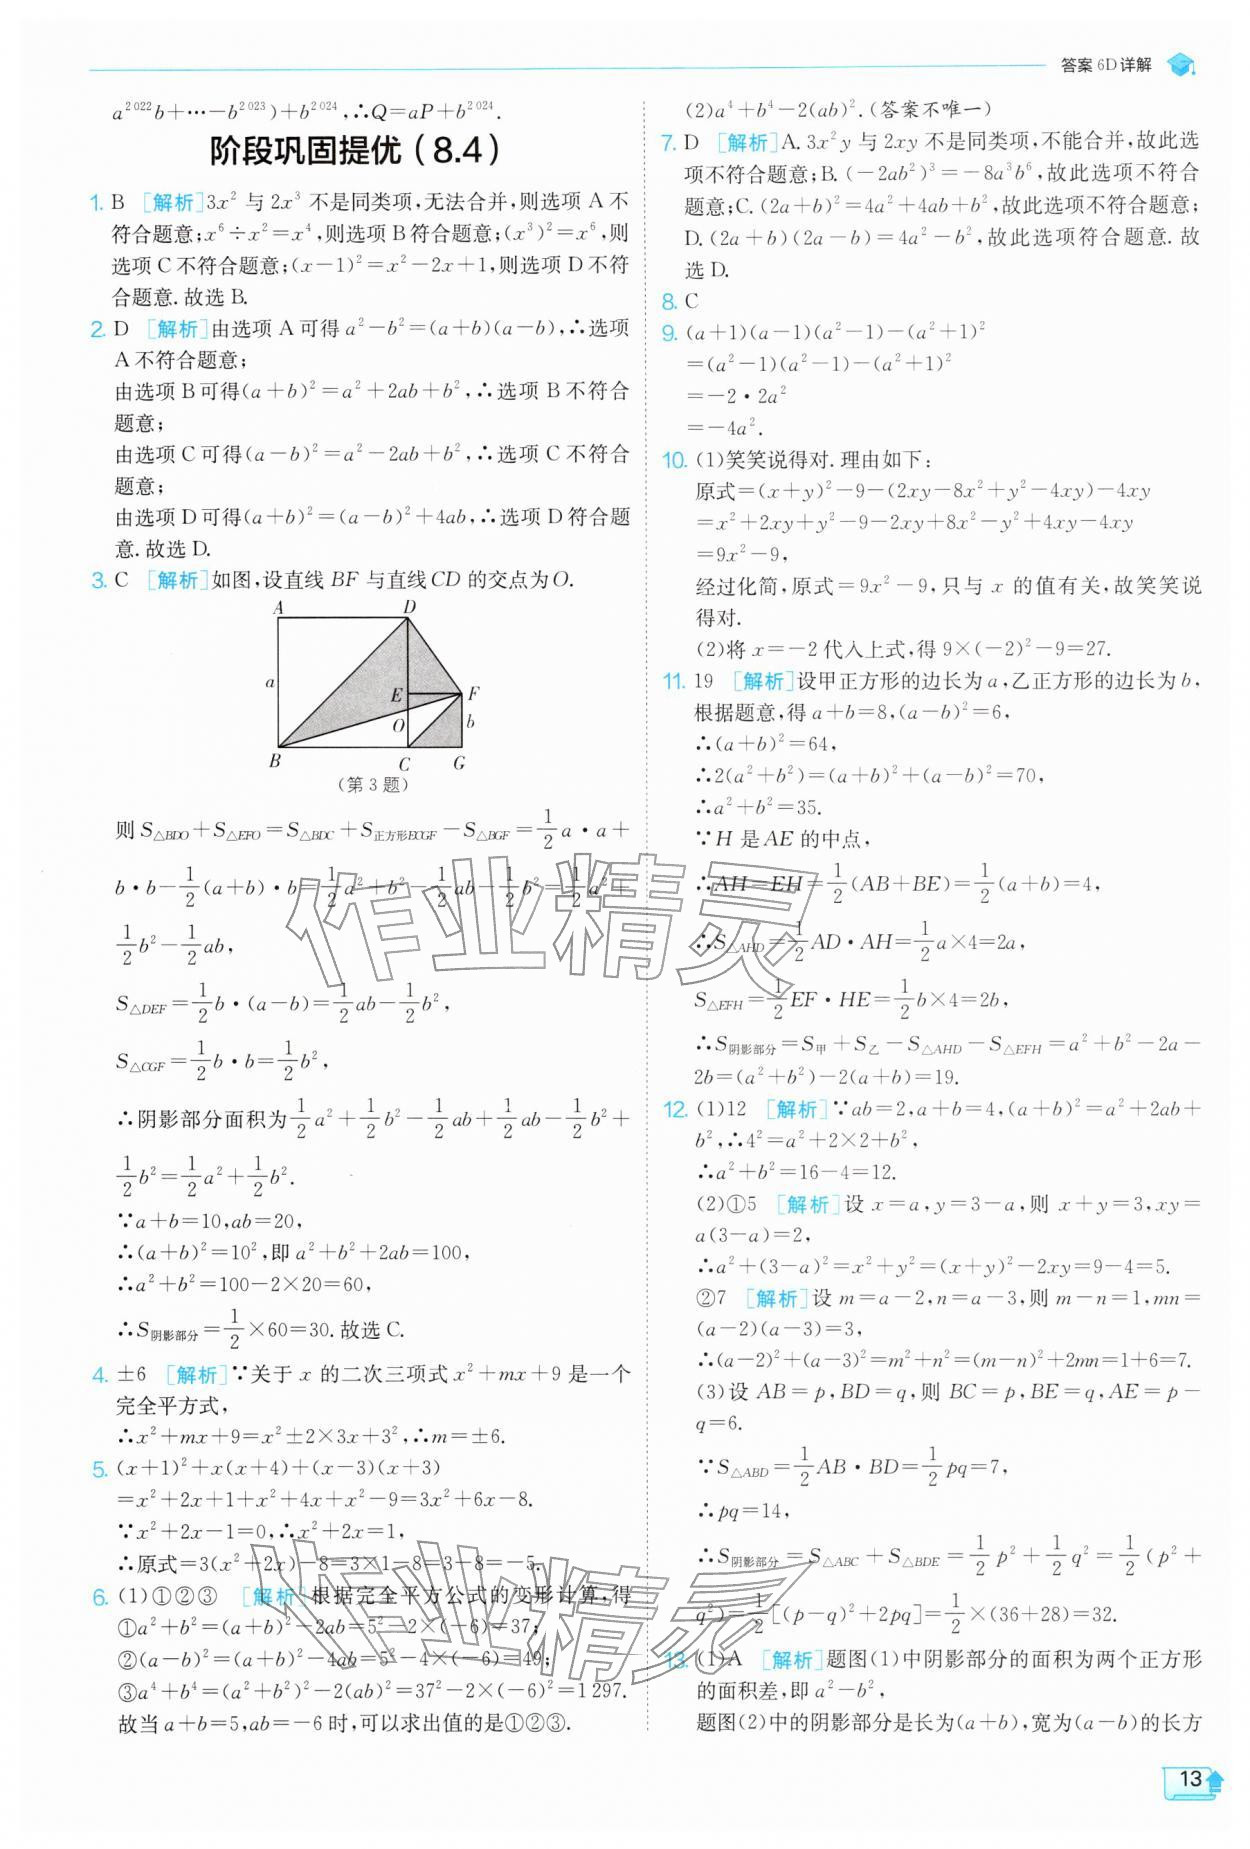 答案 6D 详解
a²⁰²²b+⋯-b²⁰²³)+b²⁰²⁴,∴Q=aP+b²⁰²⁴.
阶段巩固提优(8.4)
1. B [解析]3x² 与 2x³ 不是同类项,无法合并,则选项 A 不
符合题意;x⁶÷x²=x⁴,则选项 B 符合题意;(x³)²=x⁶,则
选项 C 不符合题意;(x-1)²=x²-2x+1,则选项 D 不符
合题意.故选 B.
2. D [解析]由选项 A 可得 a²-b²=(a+b)(a-b),∴选项
A 不符合题意;
由选项 B 可得(a+b)²=a²+2ab+b²,∴选项 B 不符合
题意;
由选项 C 可得(a-b)²=a²-2ab+b²,∴选项 C 不符合
题意;
由选项 D 可得(a+b)²=(a-b)²+4ab,∴选项 D 符合题
意.故选 D.
3. C [解析]如图,设直线 BF 与直线 CD 的交点为 O.
A D
a
E F
O b
B C G
(第 3 题)
则 S△BDO+S△EFO=S△BDC+S正方形ECGF-S△BGF=1/2 a·a+
b·b-1/2(a+b)·b=1/2 a²+b²-1/2 ab-1/2 b²=1/2 a²+
1/2 b²-1/2 ab,
S△DEF=1/2 b·(a-b)=1/2 ab-1/2 b²,
S△CGF=1/2 b·b=1/2 b²,
∴阴影部分面积为 1/2 a²+1/2 b²-1/2 ab+1/2 ab-1/2 b²+
1/2 b²=1/2 a²+1/2 b².
∵a+b=10,ab=20,
∴(a+b)²=10²,即 a²+b²+2ab=100,
∴a²+b²=100-2×20=60,
∴S阴影部分=1/2×60=30.故选 C.
4. ±6 [解析]∵关于 x 的二次三项式 x²+mx+9 是一个
完全平方式,
∴x²+mx+9=x²±2×3x+3²,∴m=±6.
5. (x+1)²+x(x+4)+(x-3)(x+3)
=x²+2x+1+x²+4x+x²-9=3x²+6x-8.
∵x²+2x-1=0,∴x²+2x=1,
∴原式=3(x²+2x)-8=3×1-8=3-8=-5.
6. (1)①②③ [解析]根据完全平方公式的变形计算,得
①a²+b²=(a+b)²-2ab=5²-2×(-6)=37;
②(a-b)²=(a+b)²-4ab=5²-4×(-6)=49;
③a⁴+b⁴=(a²+b²)²-2(ab)²=37²-2×(-6)²=1 297.
故当 a+b=5,ab=-6 时,可以求出值的是①②③.
(2)a⁴+b⁴-2(ab)².(答案不唯一)
7. D [解析]A.3x²y 与 2xy 不是同类项,不能合并,故此选
项不符合题意;B.(-2ab²)³=-8a³b⁶,故此选项不符合
题意;C.(2a+b)²=4a²+4ab+b²,故此选项不符合题意;
D.(2a+b)(2a-b)=4a²-b²,故此选项符合题意.故
选 D.
8. C
9. (a+1)(a-1)(a²-1)-(a²+1)²
=(a²-1)(a²-1)-(a²+1)²
=-2·2a²
=-4a².
10. (1)笑笑说得对.理由如下:
原式=(x+y)²-9-(2xy-8x²+y²-4xy)-4xy
=x²+2xy+y²-9-2xy+8x²-y²+4xy-4xy
=9x²-9,
经过化简,原式=9x²-9,只与 x 的值有关,故笑笑说
得对.
(2)将 x=-2 代入上式,得 9×(-2)²-9=27.
11. 19 [解析]设甲正方形的边长为 a,乙正方形的边长为 b,
根据题意,得 a+b=8,(a-b)²=6,
∴(a+b)²=64,
∴2(a²+b²)=(a+b)²+(a-b)²=70,
∴a²+b²=35.
∵H 是 AE 的中点,
∴AH=EH=1/2(AB+BE)=1/2(a+b)=4,
∴S△AHD=1/2 AD·AH=1/2 a×4=2a,
S△EFH=1/2 EF·HE=1/2 b×4=2b,
∴S阴影部分=S甲+S乙-S△AHD-S△EFH=a²+b²-2a-
2b=(a²+b²)-2(a+b)=19.
12. (1)12 [解析]∵ab=2,a+b=4,(a+b)²=a²+2ab+
b²,∴4²=a²+2×2+b²,
∴a²+b²=16-4=12.
(2)①5 [解析]设 x=a,y=3-a,则 x+y=3,xy=
a(3-a)=2,
∴a²+(3-a)²=x²+y²=(x+y)²-2xy=9-4=5.
②7 [解析]设 m=a-2,n=a-3,则 m-n=1,mn=
(a-2)(a-3)=3,
∴(a-2)²+(a-3)²=m²+n²=(m-n)²+2mn=1+6=7.
(3)设 AB=p,BD=q,则 BC=p,BE=q,AE=p-
q=6.
∵S△ABD=1/2 AB·BD=1/2 pq=7,
∴pq=14,
∴S阴影部分=S△ABC+S△BDE=1/2 p²+1/2 q²=1/2(p²+
q²)=1/2[(p-q)²+2pq]=1/2×(36+28)=32.
13. (1)A [解析]题图(1)中阴影部分的面积为两个正方形
的面积差,即 a²-b²,
题图(2)中的阴影部分是长为(a+b),宽为(a-b)的长方
13
作业精灵
作业精灵